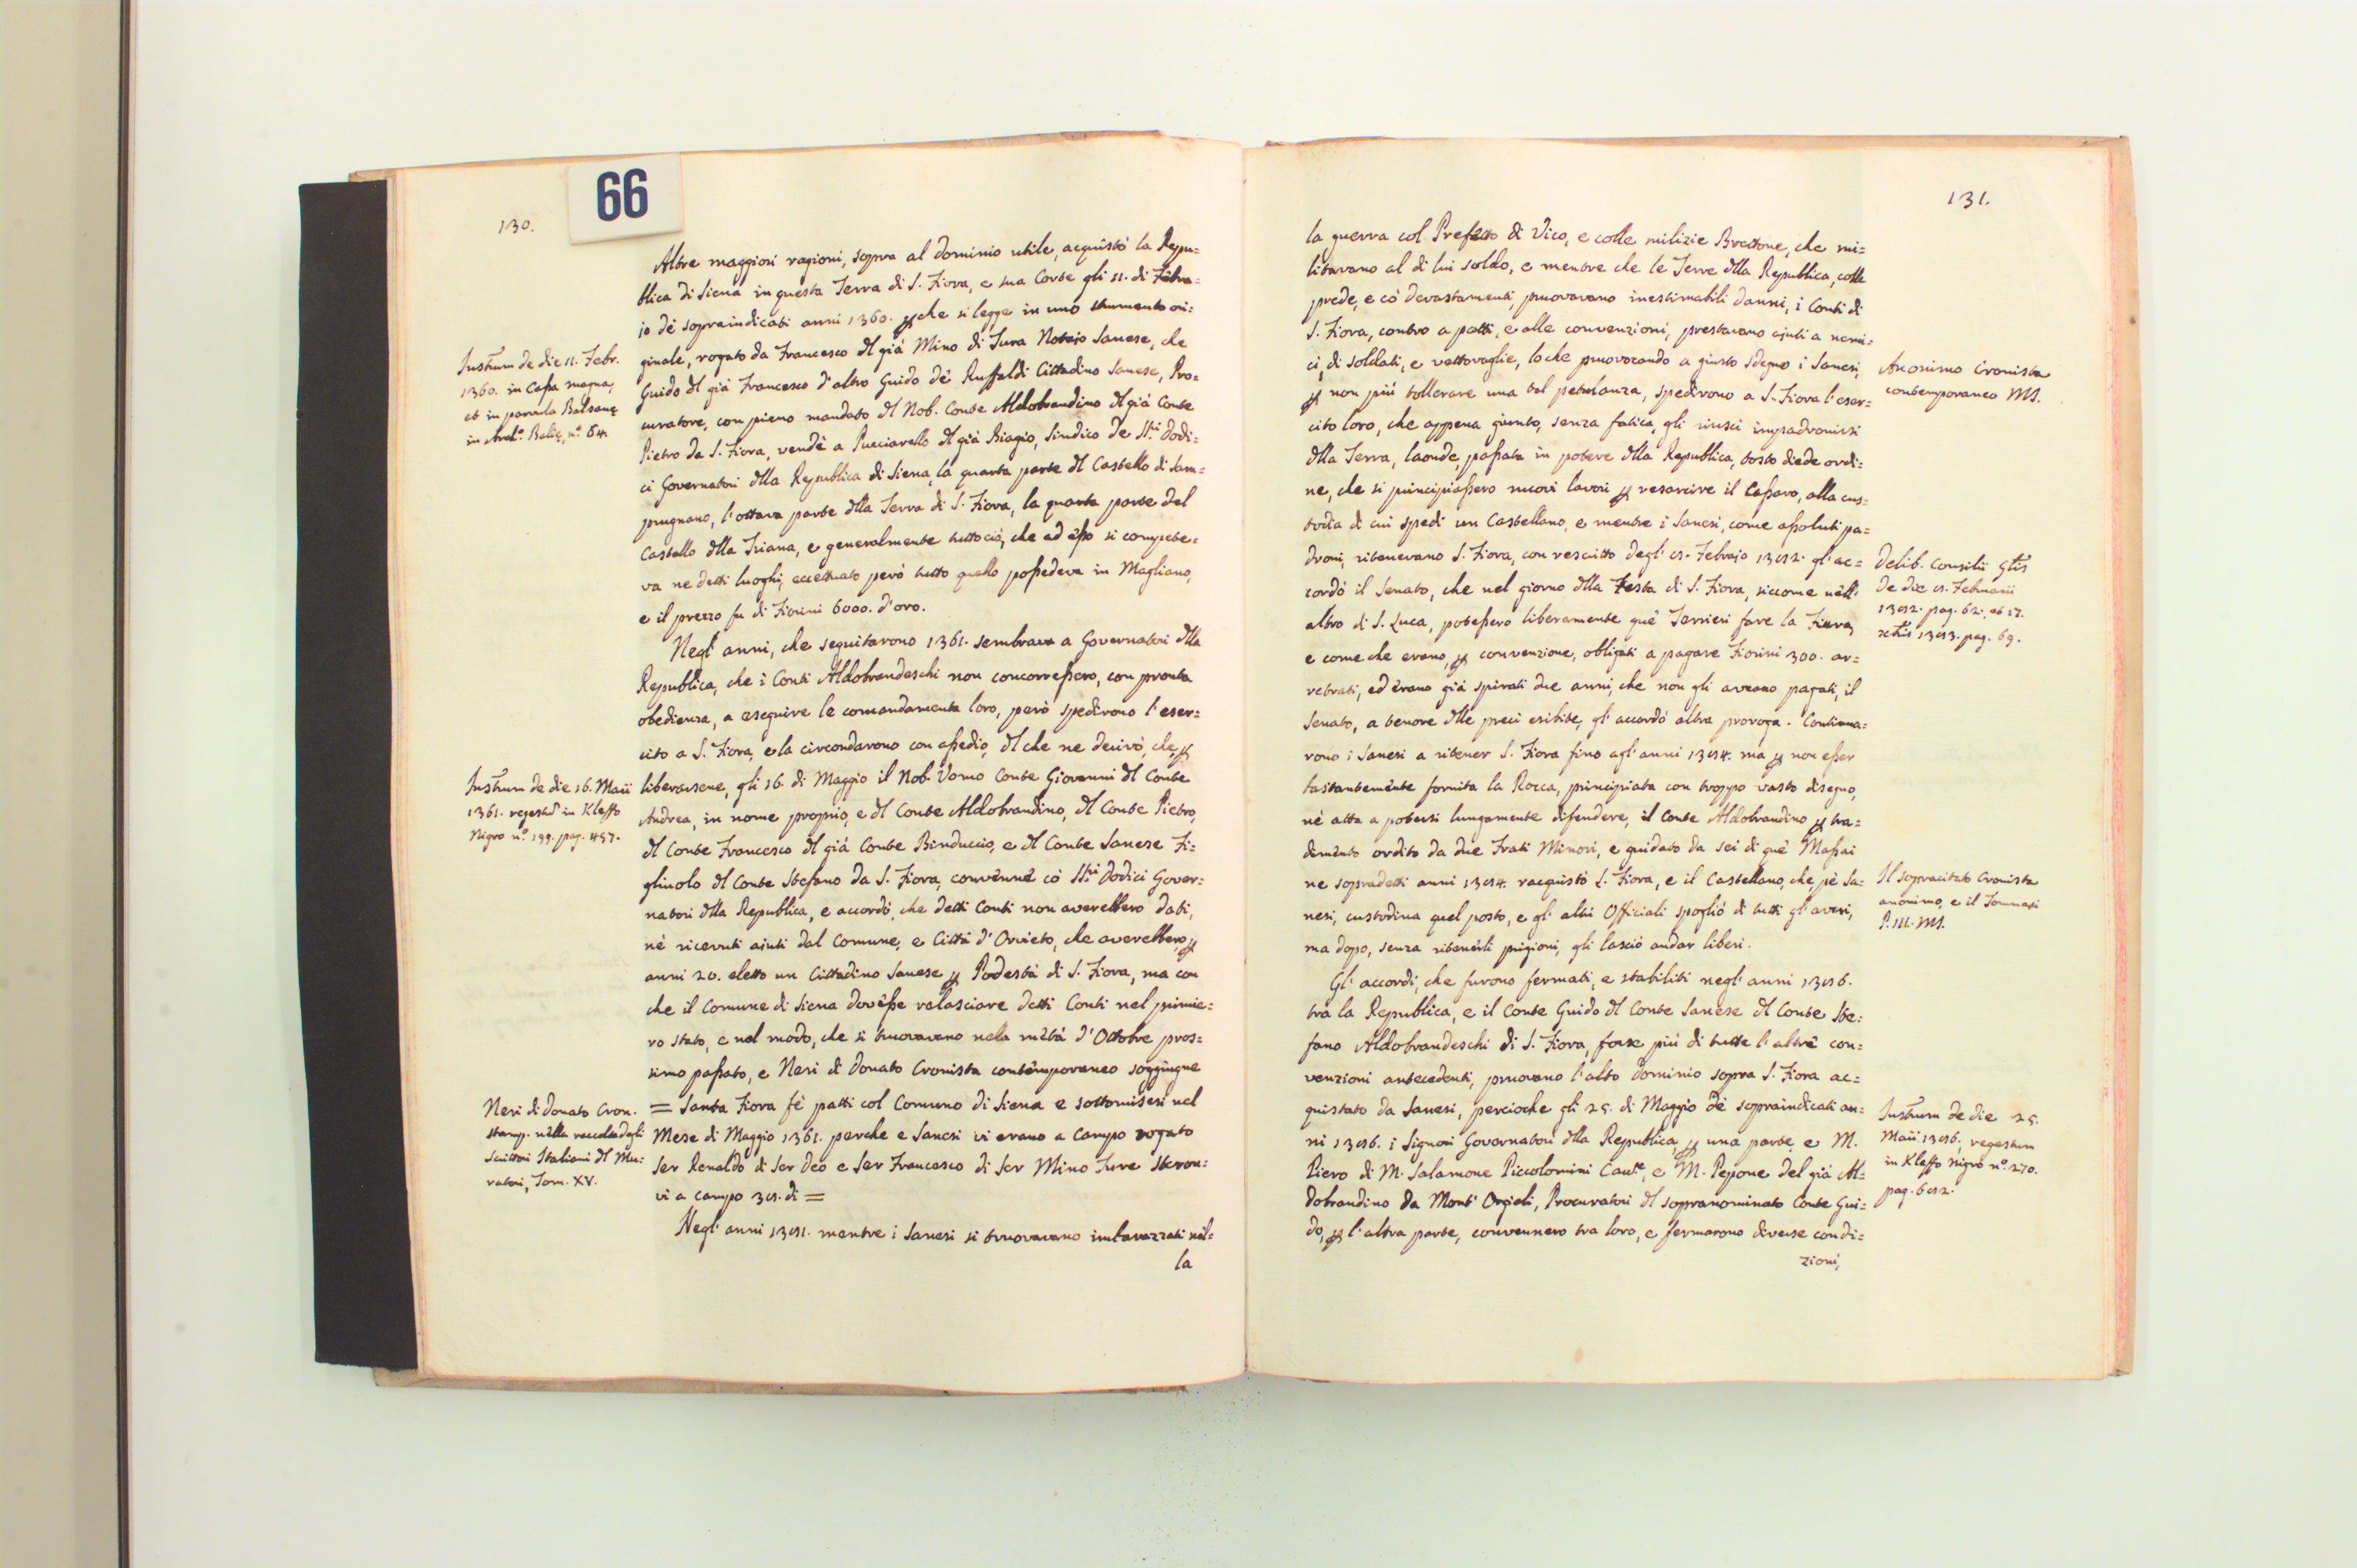 66
130.
Altre maggiori ragioni, sopra al dominio utile, acquistò la Repu=
blica di Siena in questa Terra di S. Fiora, e sua Corte gli 11. di Febra=
jo dè sopraindicati anni 1360. ꝑ che si legge in uno strumento ori=
ginale, rogato da Francesco dl già Mino di Tura Notajo Sanese, che
Guido dl già Francesco d'altro Guido dè Ruffaldi Cittadino Sanese, Pro=
curatore, con pieno mandato dl Nob. Conte Aldobrandino dl già Conte
Pietro da S. Fiora, vendè a Pucciarello dl già Biagio, Sindico de SS.ri Dodi=
ci Governatori dlla Republica di Siena, la quarta parte dl Castello di Sam=
prugnano, l'ottava parte dlla Terra di S. Fiora, la quarta parte del
Castello dlla Triana, e generalmente tuttociò, che ad esso si compete=
va ne detti luoghi, eccettuato però tutto quello possedeva in Magliano,
e il prezzo fu di Fiorini 6000. d'oro.
Negl' anni, che seguitarono 1361. sembrava a Governatori dlla
Republica, che i Conti Aldobrandeschi non concorressero, con pronta
obedienza, a eseguire le comandamenta loro, però spedirono l'eser=
cito a S. Fiora, e la circondarono con assedio, dl che ne derivò, che, ꝑ
liberarsene, gli 16. di Maggio il Nob. Uomo Conte Giovanni dl Conte
Andrea, in nome proprio, e dl Conte Aldobrandino, dl Conte Pietro,
dl Conte Francesco dl già Conte Binduccio, e dl Conte Sanese Fi=
gliuolo dl Conte Stefano da S. Fiora, convenne cò SS.ri Dodici Gover=
natori dlla Republica, e accordò, che detti Conti non averebbero dati,
nè ricevuti ajuti dal Comune, e Città d'Orvieto, che averebbero, ꝑ
anni 20. eletto un Cittadino Sanese ꝑ Podestà di S. Fiora, ma con
che il Comune di Siena dovesse rilasciare detti Conti nel primie=
ro stato, e nel modo, che si truovavano nella metà d'Ottobre pros=
simo passato, e Neri di Donato Cronista contemporaneo soggiugne
= Santa Fiora fè patti col Comuno di Siena e sottomisesi nel
Mese di Maggio 1361. perche e Sanesi vi erano a Campo rogato
Ser Renaldo di Ser Deo e Ser Francesco di Ser Mino Ture Steron=
vi a campo 35. dì =
Negl' anni 1351. mentre i Sanesi si truovavano imbarazzati nel=
la
Instrum de die 11. Febr.
1360. in Cassa magna,
et in parvula Balzanę
in Arch.o Balię, n.o 54.
Instrum de die 16. Maii
1361. regestũ in Kleffo
Nigro n.o 199. pag. 457.
Neri di Donato Cron.
stamp. nella raccolta degli
Scrittori Italiani dl Mu=
ratori, Tom. XV.
131.
la guerra col Prefetto di Vico, e colle milizie Brettone, che mi=
litavano al di lui soldo, e mentre che le Terre dlla Republica, colle
prede, e cò devastamenti, pruovavano inestimabili danni, i Conti di
S. Fiora, contro a patti, e alle convenzioni, prestavano ajuti a nemi=
ci, di soldati, e vettovaglie, loche pruovocando a giusto sdegno i Sanesi,
ꝑ non più tollerare una tal petulanza, spedirono a S. Fiora l'eser=
cito loro, che appena giunto, senza fatica, gli riuscì impadronirsi
dlla Terra, laonde, passata in potere dlla Republica, tosto diede ordi=
ne, che si principiassero nuovi lavori ꝑ resarcire il Cassaro, alla cus=
todia di cui spedì un Castellano, e mentre i Sanesi, come assoluti pa=
droni, ritenevano S. Fiora, con rescritto degl' 15. Febrajo 1352. gl' ac=
cordò il Senato, che nel giorno dlla Festa di S. Fiora, siccome nell'
altro di S. Luca, potessero liberamente què Terrieri fare la Fiera,
e come che erano, ꝑ convenzione, obligati a pagare Fiorini 300. ar=
retrati, ed erano già spirati due anni, che non gli aveano pagati, il
Senato, a tenore dlle preci esibite, gl' accordò altra proroga. Continua=
rono i Sanesi a ritener S. Fiora fino agl' anni 1354. ma ꝑ non esser
bastantemente fornita la Rocca, principiata con troppo vasto disegno,
nè atta a potersi lungamente difendere, il Conte Aldobrandino ꝑ tra=
dimento ordito da due Frati Minori, e guidato da sei di què Massai
ne sopradetti anni 1354. racquistò S. Fiora, e il Castellano, che, pè Sa=
nesi, custodiva quel posto, e gl' altri Officiali spogliò di tutti gl' averi,
ma dopo, senza ritenerli prigioni, gli lasciò andar liberi.
Gl' accordi, che furono fermati, e stabiliti negl' anni 1356.
tra la Republica, e il Conte Guido dl Conte Sanese dl Conte Ste=
fano Aldobrandeschi di S. Fiora, forse più di tutte l'altre con=
venzioni antecedenti, pruovano l'alto dominio sopra S. Fiora ac=
quistato da Sanesi, percioche gli 25. di Maggio dè sopraindicati an=
ni 1356. i Signori Governatori dlla Republica, ꝑ una parte, e M.
Piero di M. Salamone Piccolomini Cav.re, e M. Pepone del già Al=
dobrandino da Mont' Orgiali, Procuratori dl sopranominato Conte Gui=
do, ꝑ l'altra parte, convennero tra loro, e fermarono diverse condi=
zioni,
Anonimo Cronista
contemporaneo MS.
Delib. Consilii Gñlis
de die 15. Februarii
1352. pag. 62. et 17.
1353. pag. 69.
Il sopracitato Cronista
anonimo, e il Tommasi
P. III. MS.
Instrum de die 25.
Maii 1356. regestum
in Kleffo nigro n.o 270.
pag. 652.